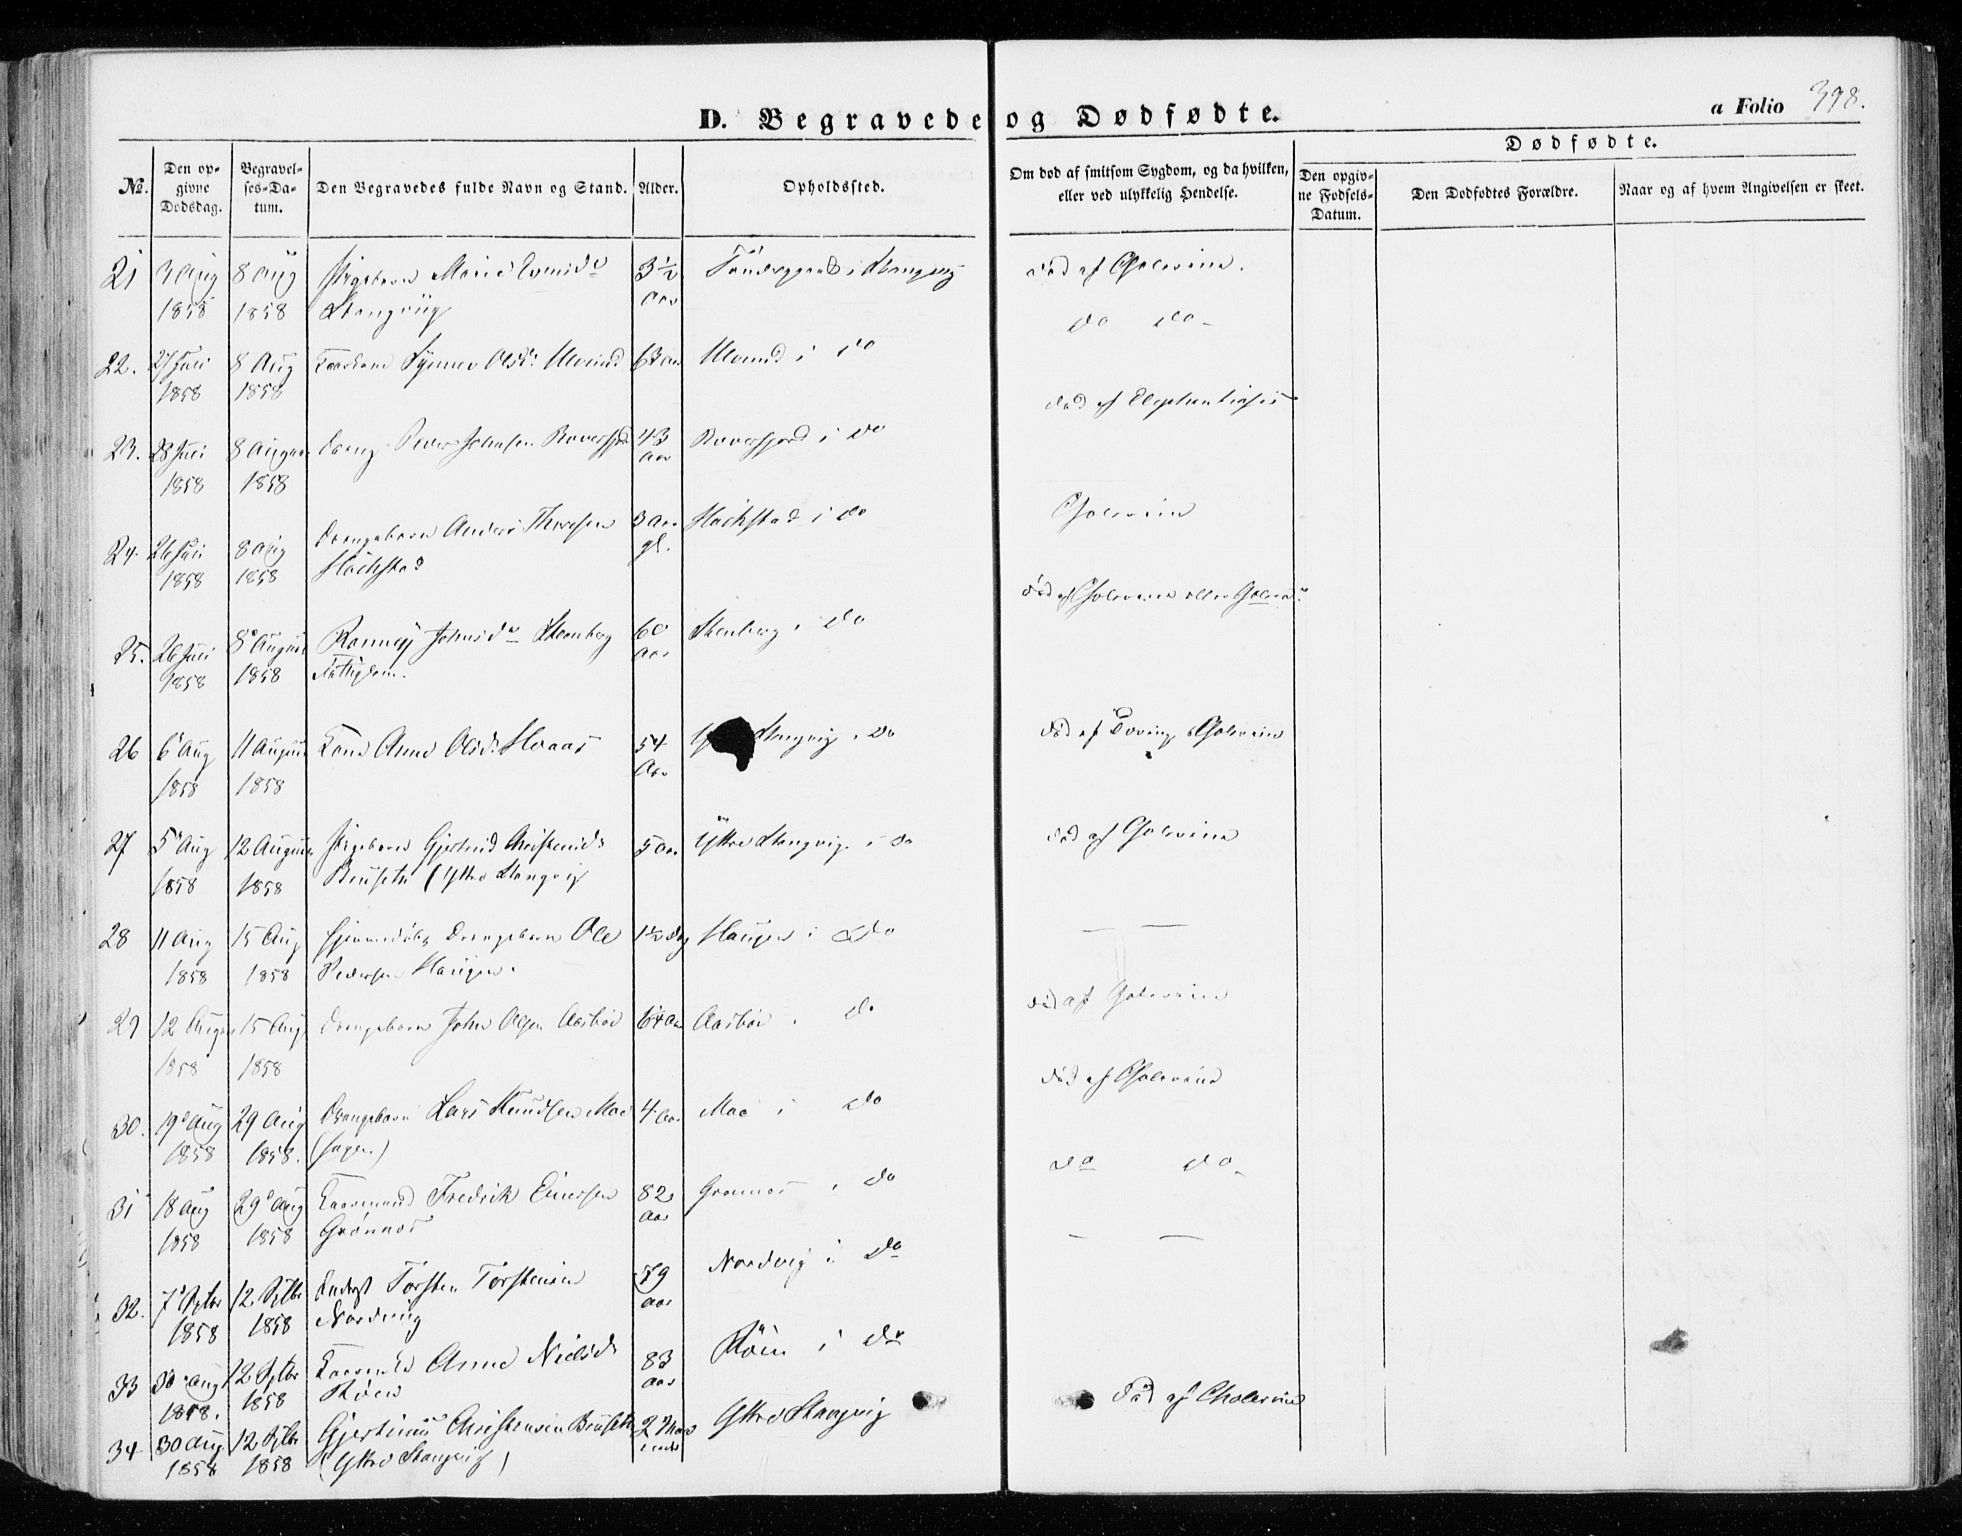 D. Begravede og Dødfødte.
a Folio 398.
Dødfødte.
No.
Den opgivne Dødsdag.
Begravelses-Datum.
Den Begravedes fulde Navn og Stand.
Alder.
Opholdssted.
Om død af smitsom Sygdom, og da hvilken, eller ved ulykkelig Hendelse.
Den opgivne Fødsels-Datum.
Den Dødfødtes Forældre.
Naar og af hvem Angivelsen er skeet.
21 3 Aug 8 Aug Pigebarn Marie 3½ i Stangvig død af Cholerine.
1858 1858 Stangvig Aar
do do
22. 27 Juli 8 Aug Olsd: Ulvund 63 Aar Ulvund i do
1858 1858
død af Elephantiasis
23. 28 Juli 8 August Johnsen 43 i do
1858 1858 Aar
Cholerine
24. 26 Juli 8 Aug Drengebarn Anders 3 Aar i do
1858 1858 gl.
død af Cholerine eller Cholera
25. 26 Juli 8 August Johnsd Stenberg 60 Stenberg i do
1858 1858 Fattiglem. Aar
26 6 Aug 11 August Kone Anne Olsd: 54 Stangvig i do død af Cholerine
1858 1858 Aar
27 5 Aug 12 August Pigebarn Gjertrud Christensd 5 Aar Yttre Stangvig i do død af Cholerine
1858 1858 Bruseth (Yttre Stangvig
28 11 Aug 15 Aug Hjemmedøbt Drengebarn Ole 1½ Dag Haugen i do — —
1858 1858 Pedersen Haugen.
29 12 August 15 Aug Drengebarn John Olsen Aasbøe Aasbøe i do død af Cholerine
1858 1858
30. 19 Aug 29 Aug Drengebarn Lars Knudsen Moe 4 Aar Moe i do død af Cholerine
1858 1858.
31 18 Aug 29 Aug Kaarmand Fredrik Einersen 82 i do do do
1858 1858 Grønnes Aar
32. 7 Septbr 12 Septbr Torsten Torstensen 79 Nordvig i do — —
1858 1858 Nordvig Aar
33 30 Aug 12 Septbr Anne Nielsd 83 Røen i do
1858. 1858 Røen Aar
34 30 Aug 12 Septbr Gjertinus Christensen Bruseth 2 Yttre Stangvig død af Cholerine
1858 1858 (Yttre Stangvig)